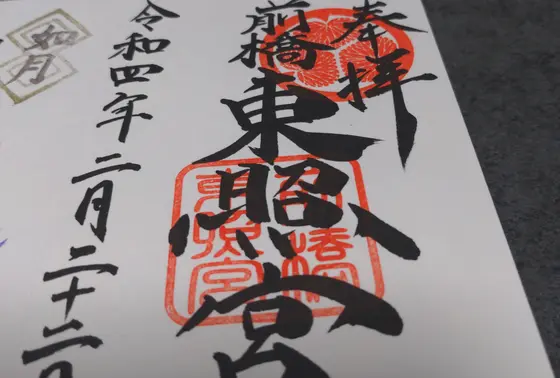 奉拝
前橋
東照宮
前橋
東照宮
令和四年二月二十二日
如月